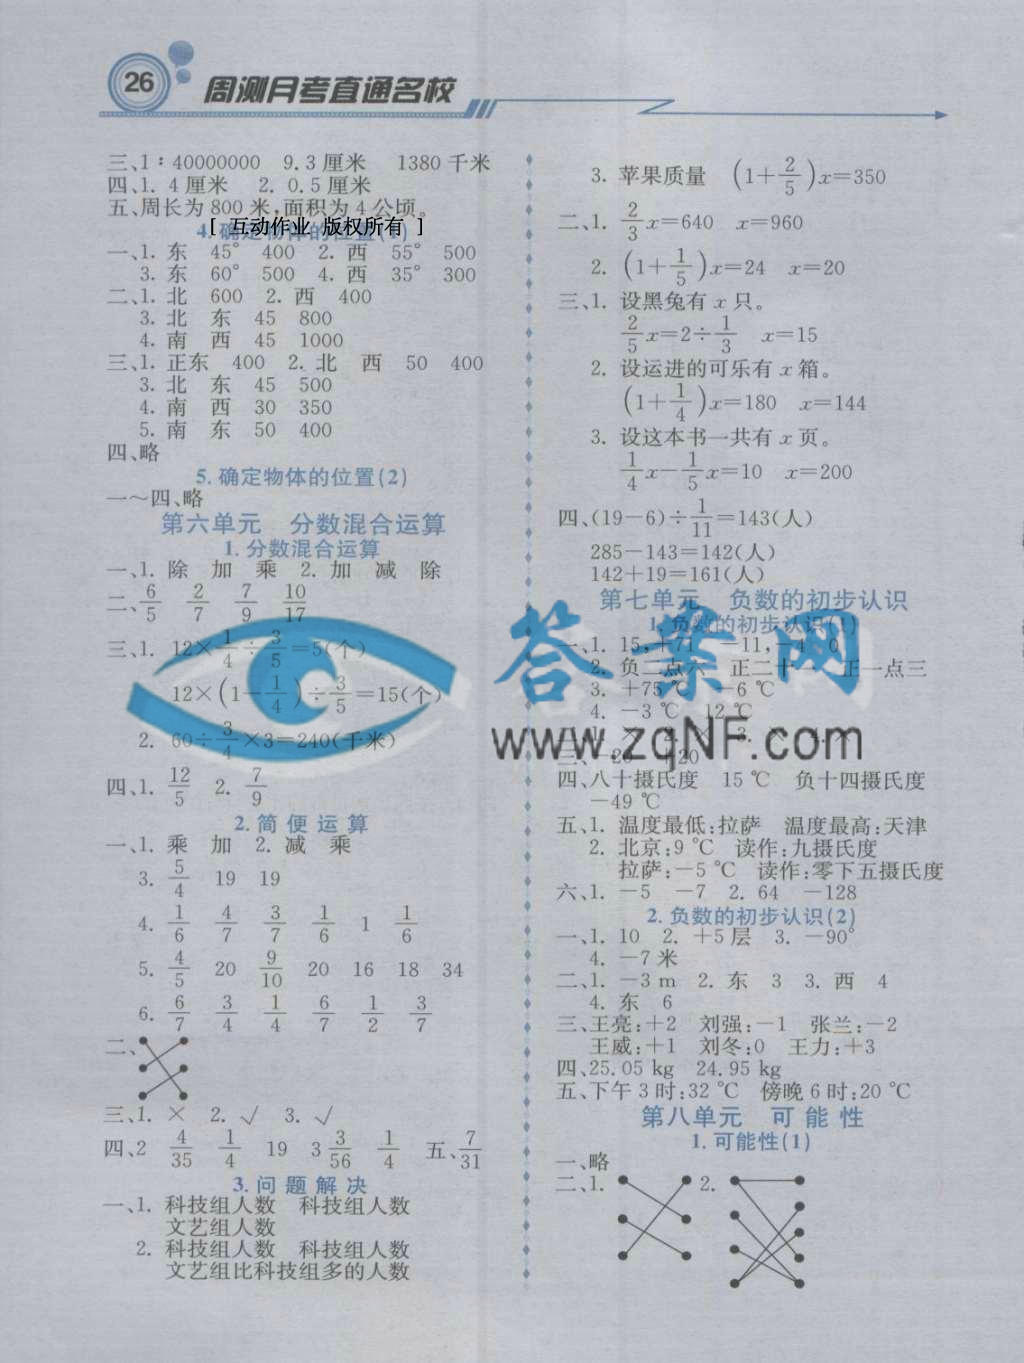 26
周测月考直通名校
三、1∶40000000 9.3厘米 1380千米
四、1. 4厘米 2. 0.5厘米
五、周长为800米,面积为4公顷。
[ 互动作业 版权所有 ]
4.确定物体的位置(1)
一、1. 东 45° 400 2. 西 55° 500
3. 东 60° 500 4. 西 35° 300
二、1. 北 600 2. 西 400
3. 北 东 45 800
4. 南 西 45 1000
三、1. 正东 400 2. 北 西 50 400
3. 北 东 45 500
4. 南 西 30 350
5. 南 东 50 400
四、略
5.确定物体的位置(2)
一~四、略
第六单元 分数混合运算
1.分数混合运算
一、1. 除 加 乘 2. 加 减 除
二、6/5 2/7 7/9 10/17
三、1. 12×1/4÷3/5=5(个)
12×(1-1/4)÷3/5=15(个)
2. 60÷3/4×3=240(千米)
四、1. 12/5 2. 7/9
2.简便运算
一、1. 乘 加 2. 减 乘
3. 5/4 19 19
4. 1/6 4/7 3/7 1/6 1 1/6
5. 4/5 20 9/10 20 16 18 34
6. 6/7 3/4 1/4 6/7 1/2 3/7
二、
三、1. × 2. √ 3. √
四、2 4/35 1/4 19 3 3/56 1/4 五、7/31
3.问题解决
一、1. 科技组人数 科技组人数
文艺组人数
2. 科技组人数 科技组人数
文艺组比科技组多的人数
3. 苹果质量 (1+2/5)x=350
二、1. 2/3x=640 x=960
2. (1+1/5)x=24 x=20
三、1. 设黑兔有x只。
2/5x=2÷1/3 x=15
2. 设运进的可乐有x箱。
(1+1/4)x=180 x=144
3. 设这本书一共有x页。
1/4x-1/5x=10 x=200
四、(19-6)÷1/11=143(人)
285-143=142(人)
142+19=161(人)
第七单元 负数的初步认识
1.负数的初步认识(1)
一、1. 15,+71 -11,-4 0
2. 负二点六 正二十一 正一点三
3. +75℃ -6℃
4. -3℃ 12℃
二、1. × 2. × 3. ×
三、-20 +20
四、八十摄氏度 15℃ 负十四摄氏度
-49℃
五、1. 温度最低:拉萨 温度最高:天津
2. 北京:9℃ 读作:九摄氏度
拉萨:-5℃ 读作:零下五摄氏度
六、1. -5 -7 2. 64 -128
2.负数的初步认识(2)
一、1. 10 2. +5层 3. -90°
4. -7米
二、1. -3 m 2. 东 3 3. 西 4
4. 东 6
三、王亮:+2 刘强:-1 张兰:-2
王威:+1 刘冬:0 王力:+3
四、25.05 kg 24.95 kg
五、下午3时:32℃ 傍晚6时:20℃
第八单元 可能性
1.可能性(1)
一、略
二、1. 2.
答案网
www.zqNF.com